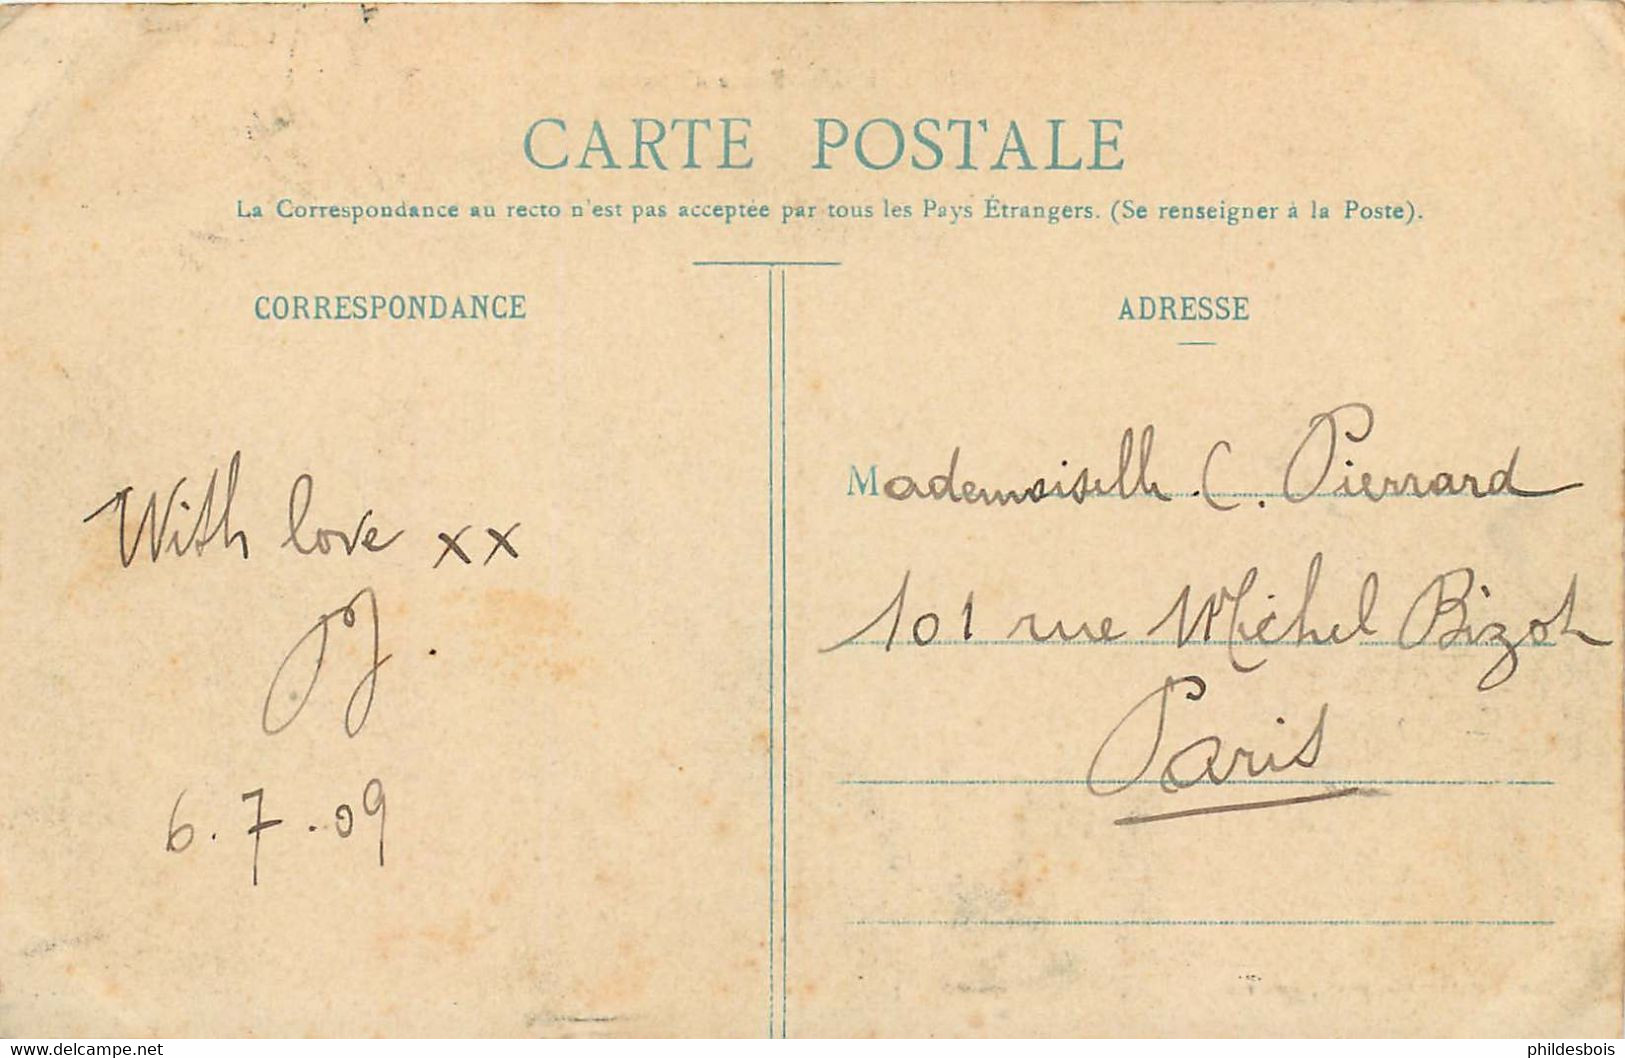 CARTE POSTALE
La Correspondance au recto n'est pas acceptée par tous les Pays Étrangers. (Se renseigner à la Poste).
CORRESPONDANCE
With love xx
J.
6.7.09
ADRESSE
Mademoiselle C. Pierrard
101 rue Michel Bizot
Paris
www.delcampe.net
phildesbois